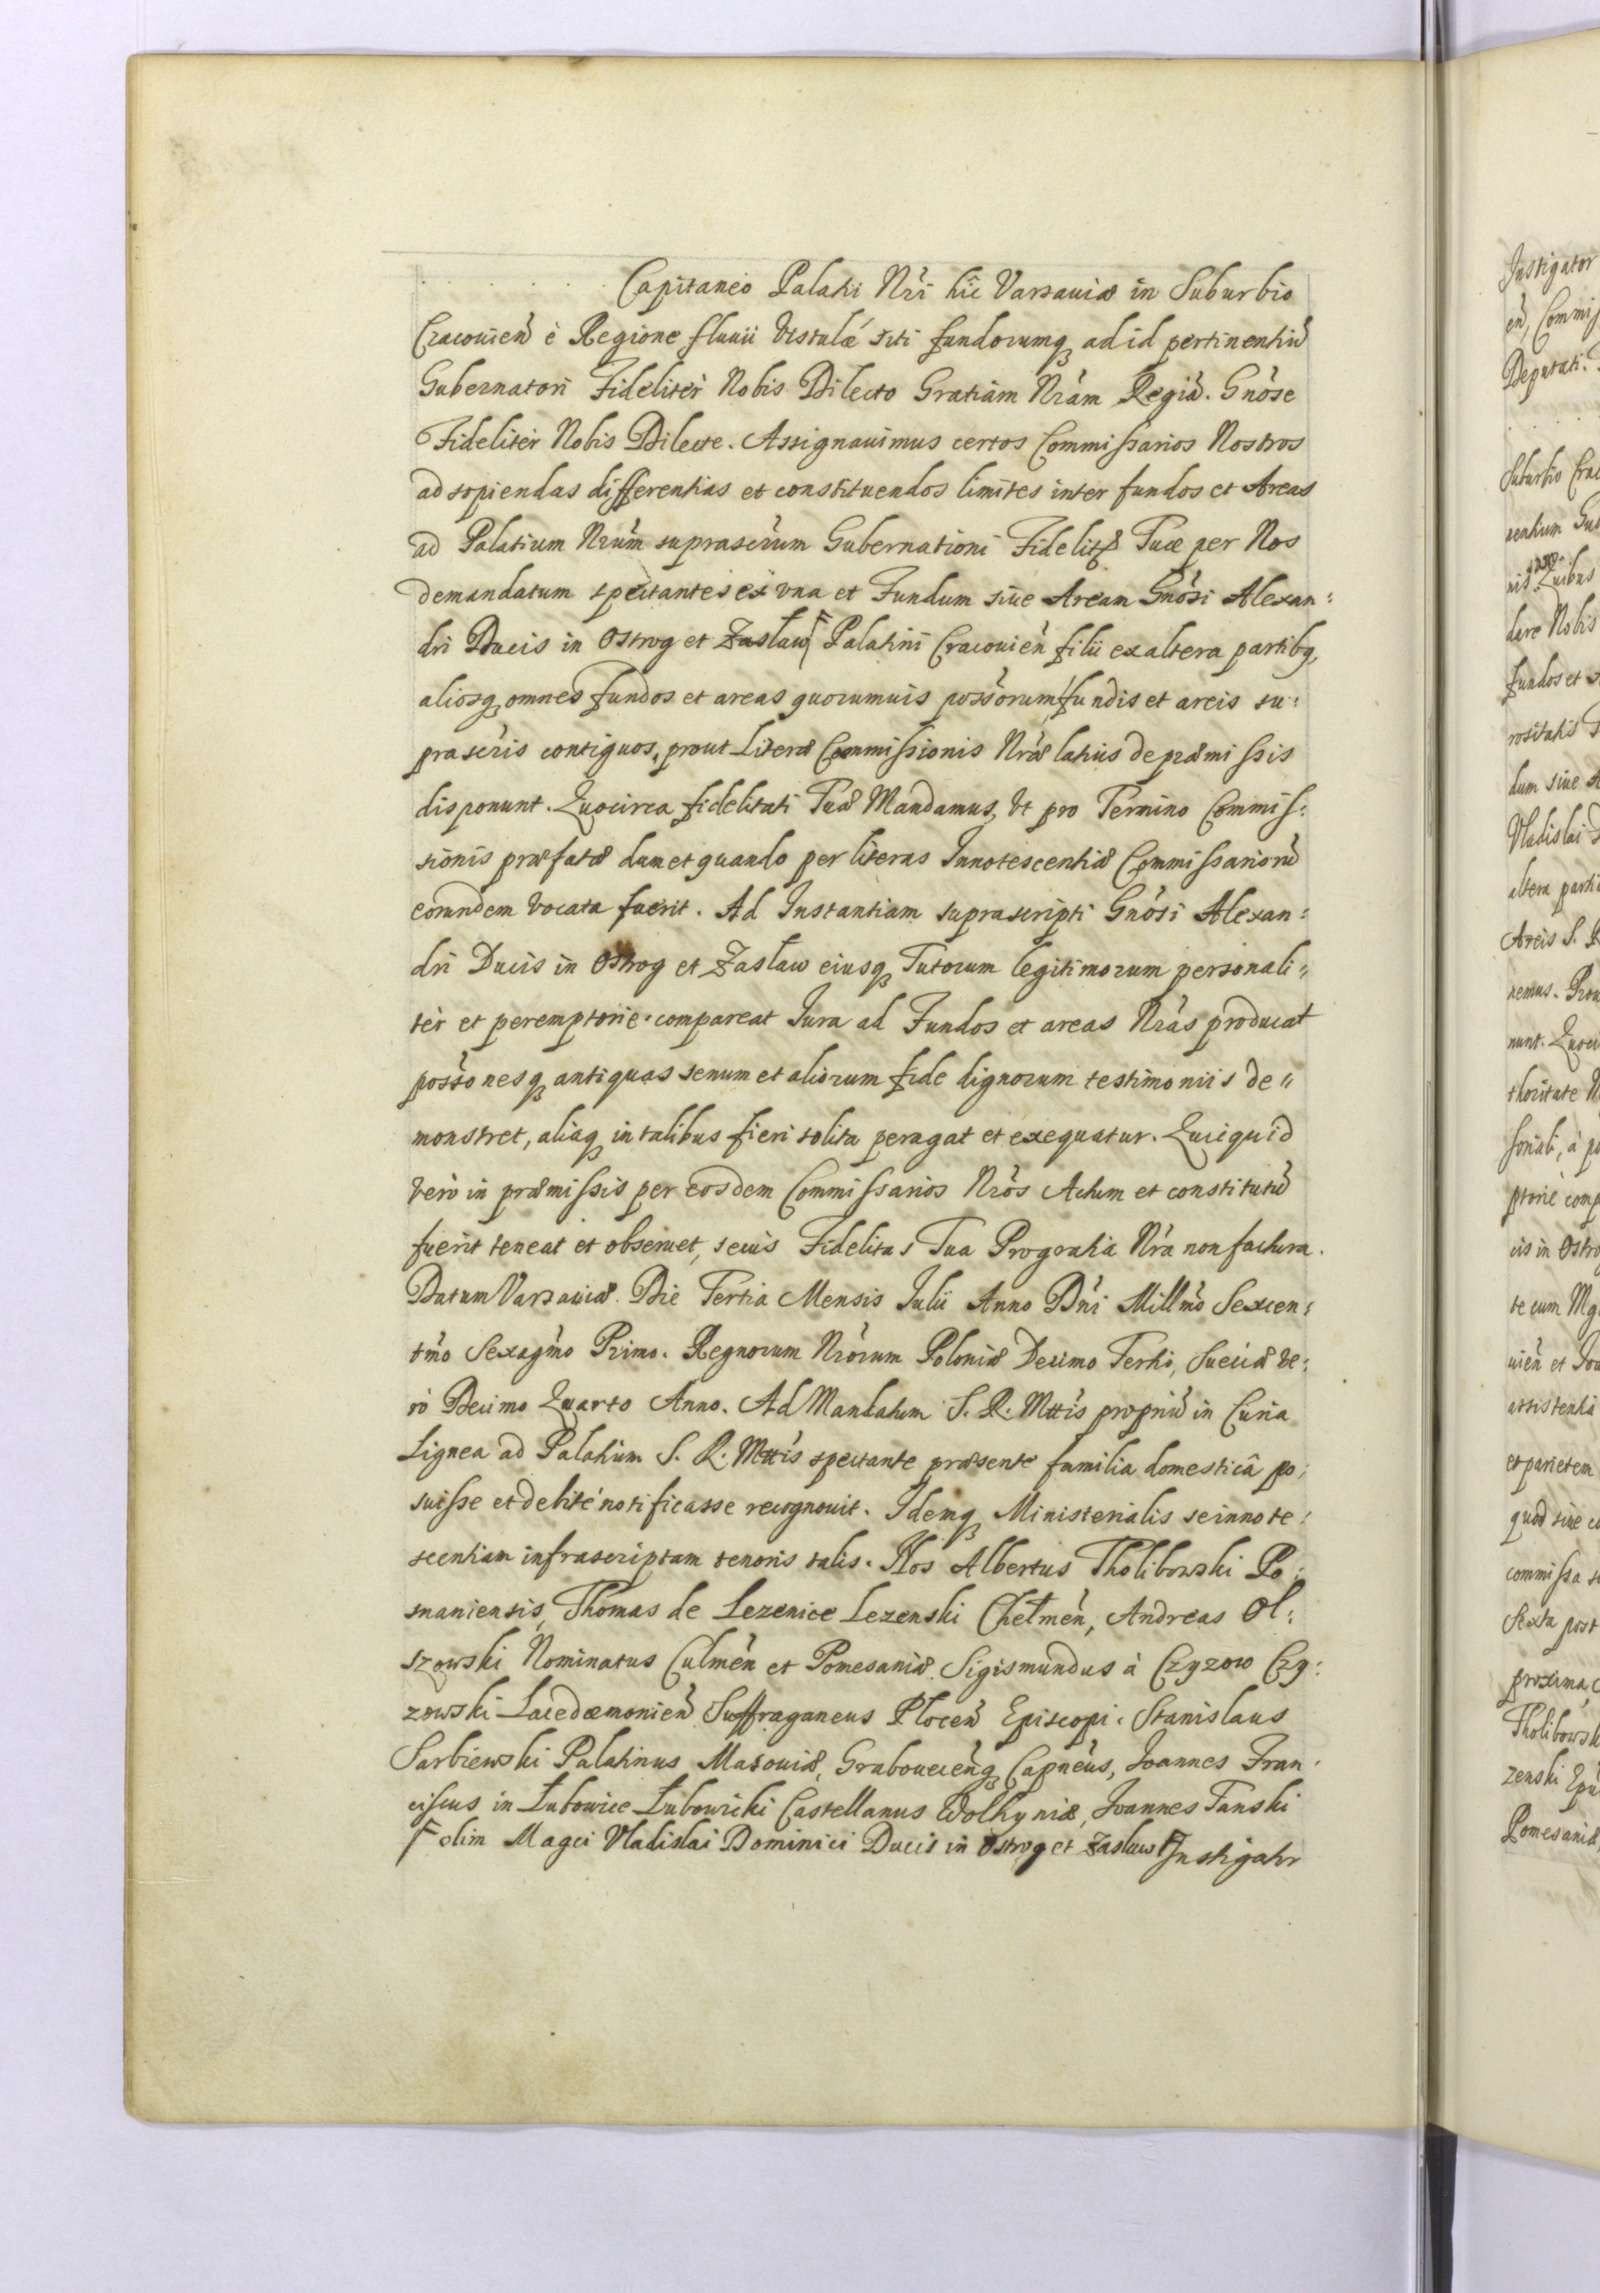 . . . . . . Capitaneo Palatii Nr̃i hîc Varsauiæ in Suburbio
Cracouien̉ è Regione fluuii Vistulæ siti fundorumq̃ ad id pertinentiũ
Gubernatori Fideliter Nobis Dilecto Gratiam Nr̃am Regiã. Gnõse
Fideliter Nobis Dilecte. Assignauimus certos Commissarios Nostros
ad sopiendas differentias et constituendos limites inter fundos et Areas
ad Palatium Nr̃um suprascr̃um Gubernationi Fidelitis Tuæ per Nos
demandatum spectantes ex vna et Fundum siue Aream Gnõsi Alexan:
dri Ducis in Ostrog et Zasław Palatini Cracouien̉ filii ex altera partibq̃,
aliosq̃ omnes fundos et areas quorumuis possõrum fundis et areis su:
prascr̃is contiguos, prout Literæ Commissionis Nr̃æ latius de præmissis
disponunt. Quocirca fidelitati Tuæ Mandamus, Vt pro Termino Commis:
sionis præfatæ dum et quando per literas Innotescentiæ Commissariorũ
eorundem vocata fuerit. Ad Instantiam suprascripti Gnõsi Alexan:
dri Ducis in Ostrog et Zasław eiusq̃ Tutorum legitimorum personali:
ter et peremptorie compareat Iura ad Fundos et areas Nr̃as producat
possõnesq̃ antiquas senum et aliorum fide dignorum testimoniis de:
monstret, aliaq̃ in talibus fieri solita peragat et exequatur. Quicquid
verò in præmissis per eosdem Commissarios Nr̃os Actum et constitutũ
fuerit teneat et obseruet, secùs Fidelitas Tua Progratia Nr̃a non factura.
Datum Varsauiæ. Die Tertia Mensis Iulii Anno Dñi Millm̃o Sexcen:
tm̃o Sexagm̃o Primo. Regnorum Nr̃orum Poloniæ Decimo Tertio, Sueciæ ve:
rò Decimo Quarto Anno. Ad Mandatum S. R. Mttis propriũ in Curia
Lignea ad Palatium S. R. Mttis spectante præsente familia domesticâ po:
suisse et debitè notificasse recognouit. Idemq̃ Ministerialis se innote:
scentiam infrascriptam tenoris talis. Nos Albertus Tholibowski Po:
snaniensis, Thomas de Lezenice Lezenski Chełmen̉, Andreas Ol:
szowski Nominatus Culmen̉ et Pomesaniæ, Sigismundus à Czyzow Czy:
zowski Lacedæmonien̉ Suffraganeus Plocen̉ Episcopi. Stanislaus
Sarbiewski Palatinus Masouiæ, Grabouecen̉q̃ Capneus, Ioannes Fran:
ciscus in Łubowice Łubowicki Castellanus Wolhyniæ, Ioannes Tanski
olim Magci Vladislai Dominici Ducis in Ostrog et Zasław Instigator
Instigator
en̉, Commis
Deputati.
Suburbio Crac
nentium Gub
Quibus
dare Nobis
fundos et
rositatis
dum siue
Vladislai
altera parti
Areis S. R
nunt.
thoritate N
ptorie comp
cis in Ostro
te cum Mg
uien̉ et Ioa
assistentia
et parietem
quod siue
commissa
Sexta post
proxima
Tholibowsk
zenski Ep̃i
Pomesaniæ,